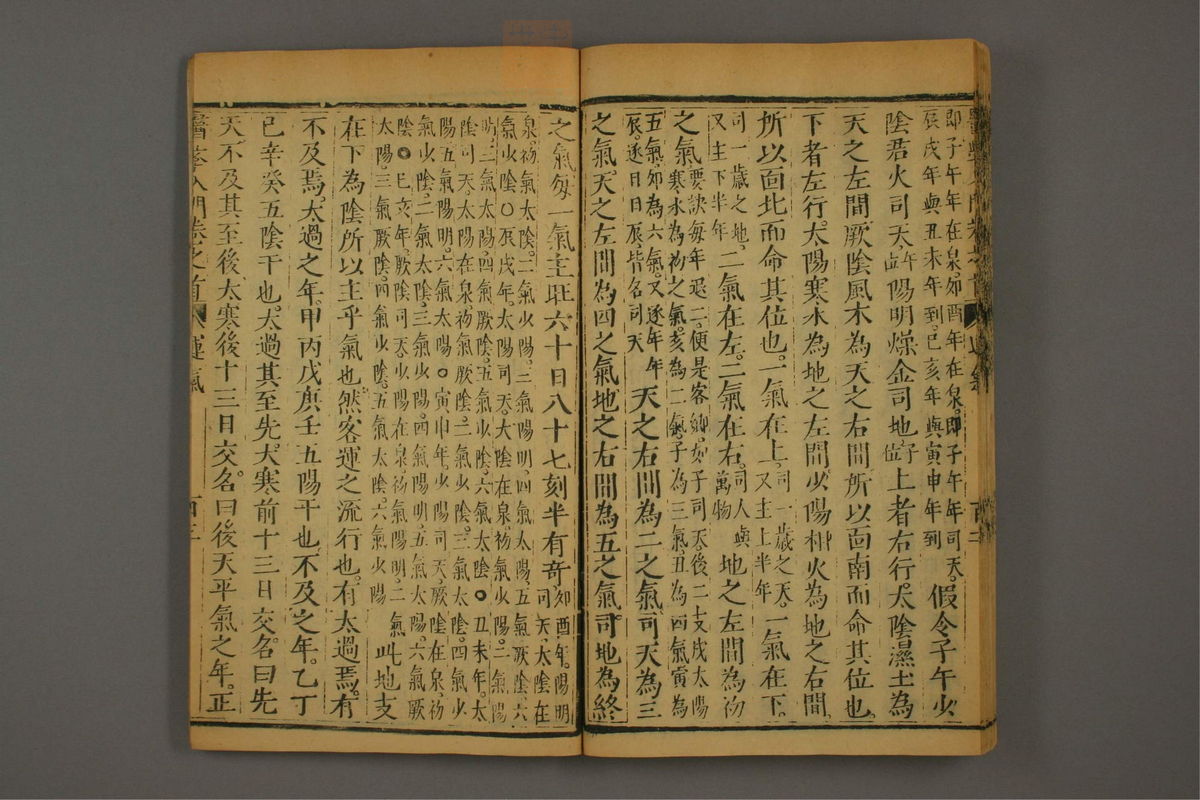 即子午年在泉。卯酉年在泉。即子午年司天。假令子午少
辰戌年與丑未年到。巳亥年與寅申年到
陰君火司天午位陽明燥金司地子位上者右行。太陰濕土為
天之左間。厥陰風木為天之右間。所以面南而命其位也。
下者左行。太陽寒水為地之左間。少陽相火為地之右間。
所以面北而命其位也。一氣在上。司一歲之天。又主上半年一氣在下。
司一歲之地。又主下半年二氣在左。二氣在右。司人與萬物地之左間為初
之氣。要訣每年退二。便是客鄉。如子司天後二支戌太陽寒水為初之氣。亥為二氣。子為三氣。丑為四氣。寅為
五氣。卯為六氣。又逐年年辰。逐日日辰。皆名司天天之右間為二之氣。司天為三
之氣。天之左間為四之氣。地之右間為五之氣。司地為終
之氣。每一氣主旺六十日八十七刻半有奇如酉年。陽明司天。太陰在
泉。初氣太陰。二氣少陽。三氣陽明。四氣太陽。五氣厥陰。六
氣少陰○辰戌年。太陽司天。太陰在泉。初氣少陽。二氣陽
明。三氣太陽。四氣厥陰。五氣少陰。六氣太陰○丑未年。太
陰司天。太陽在泉。初氣厥陰。二氣少陰。三氣太陰。四氣少
陽。五氣陽明。六氣太陽○寅申年。少陽司天。厥陰在泉。初
氣少陰。二氣太陰。三氣少陽。四氣陽明。五氣太陽。六氣厥
陰○巳亥年。厥陰司天。少陽在泉。初氣陽明。二氣
太陽。三氣厥陰。四氣少陰。五氣太陰。六氣少陽此地支
在下為陰所以主乎氣也。然客運之流行也。有太過焉。有
不及焉。太過之年。甲丙戊庚壬五陽干也。不及之年。乙丁
己辛癸五陰干也。太過其至先。大寒前十三日交。名曰先
天。不及其至後。大寒後十三日交。名曰後天。平氣之年。正
醫學入門卷之首
運氣